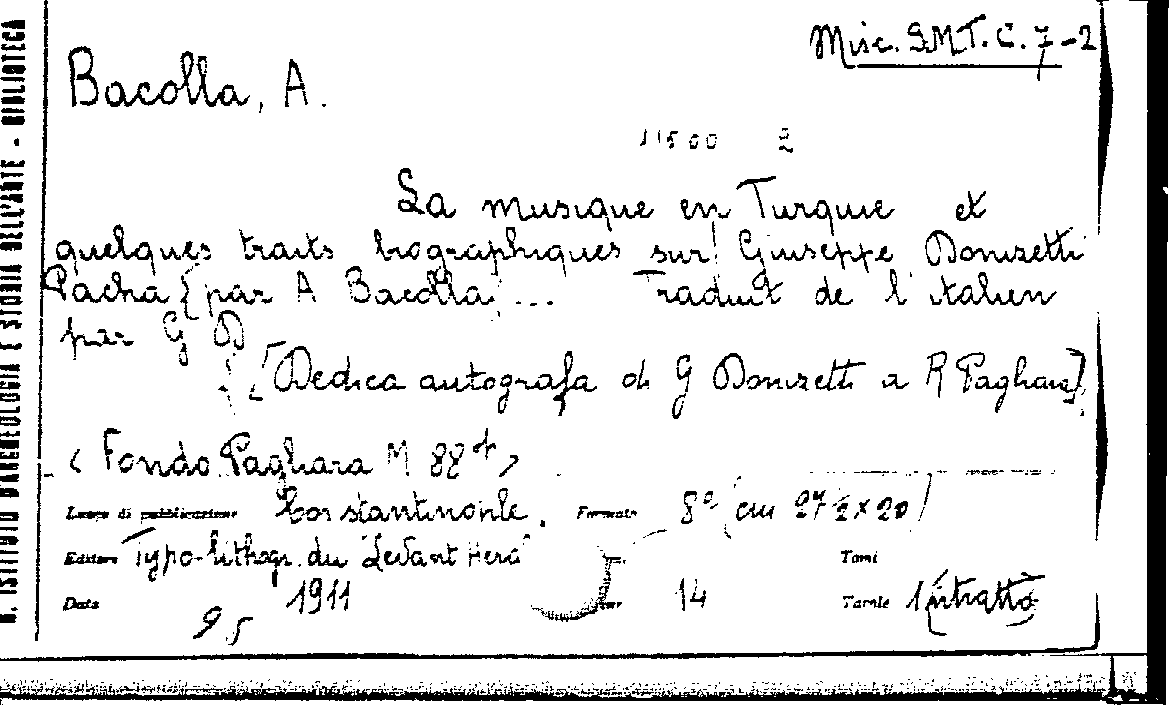 R. ISTITUTO D'ARCHEOLOGIA E STORIA DELL'ARTE - BIBLIOTECA
Misc. S.M.T. C. 7-2
Bacolla, A.
11500 2
La musique en Turquie et
quelques traits biographiques sur Giuseppe Donizetti
Pacha [par A Bacolla, ... Traduit de l'italien
par G D
[Dedica autografa di G Donizetti a R Pagliara]
< Fondo Pagliara M 88 >
Luogo di pubblicazione Constantinople. Formato 8° (cm 27½x20)
Editore Typo-lithogr. du "Levant Heral Tomi
Data 1911 14 Tavole 1 ritratto
95